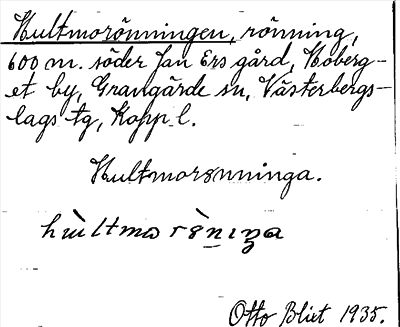 Hultmorönningen, rönning,
600 m. söder Jan Ers gård, Hoberg-
et by, Grangärde sn, Västerbergs-
lags tg, Kopp l.
Hultmorsnninga.
Otto Blixt 1935.